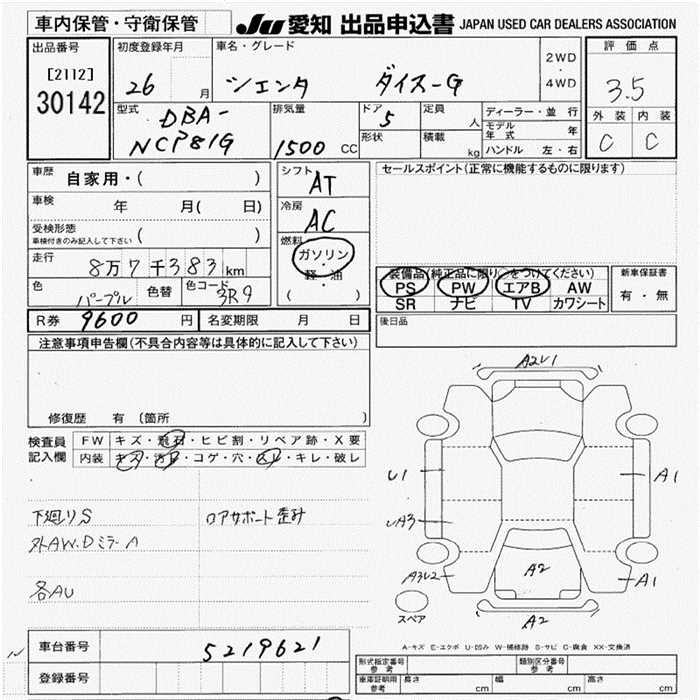 車内保管・守衛保管
JU 愛知 出品申込書 JAPAN USED CAR DEALERS ASSOCIATION
出品番号
[2112]
30142
初度登録年月
26 月
車名・グレード
シエンタ ダイス-G
2WD
・
4WD
評価点
3.5
外装 内装
C C
型式
DBA-
NCP81G
排気量
1500 CC
ドア
5
形状
定員
人
積載
kg
ディーラー・並行
モデル年式 年
ハンドル 左・右
車歴
自家用・( )
車検
年 月( 日)
受検形態
車検付きのみ記入して下さい ( )
走行
8万7千383km
色
パープル
色替
色コード
3R9
シフト
AT
冷房
AC
燃料
ガソリン
・
軽・油
( )
セールスポイント(正常に機能するものに限ります)
装備品(純正品に限り○をつけてください)
PS PW エアB AW
SR ナビ TV カワシート
新車保証書
有・無
R券 9600 円
名変期限 月 日
後日品
注意事項申告欄(不具合内容等は具体的に記入して下さい)
修復歴 有 (箇所 )
検査員
記入欄
FW キズ・飛石・ヒビ割・リペア跡・X要
内装 キズ・汚れ・コゲ・穴・スレ・キレ・破レ
下廻りS
外AW.DミラーA
各AU
ロアサポート歪み
A2U1
U1
A1
UA3
A3U2
A2
A1
A2
スペア
A-キズ E-エクボ U-凹み W-補修跡 S-サビ C-腐食 XX-交換済
車台番号
5219621
登録番号
形式指定番号
参考
類別区分番号
参考
車庫証明用
参考
長さ cm
幅 cm
高さ cm